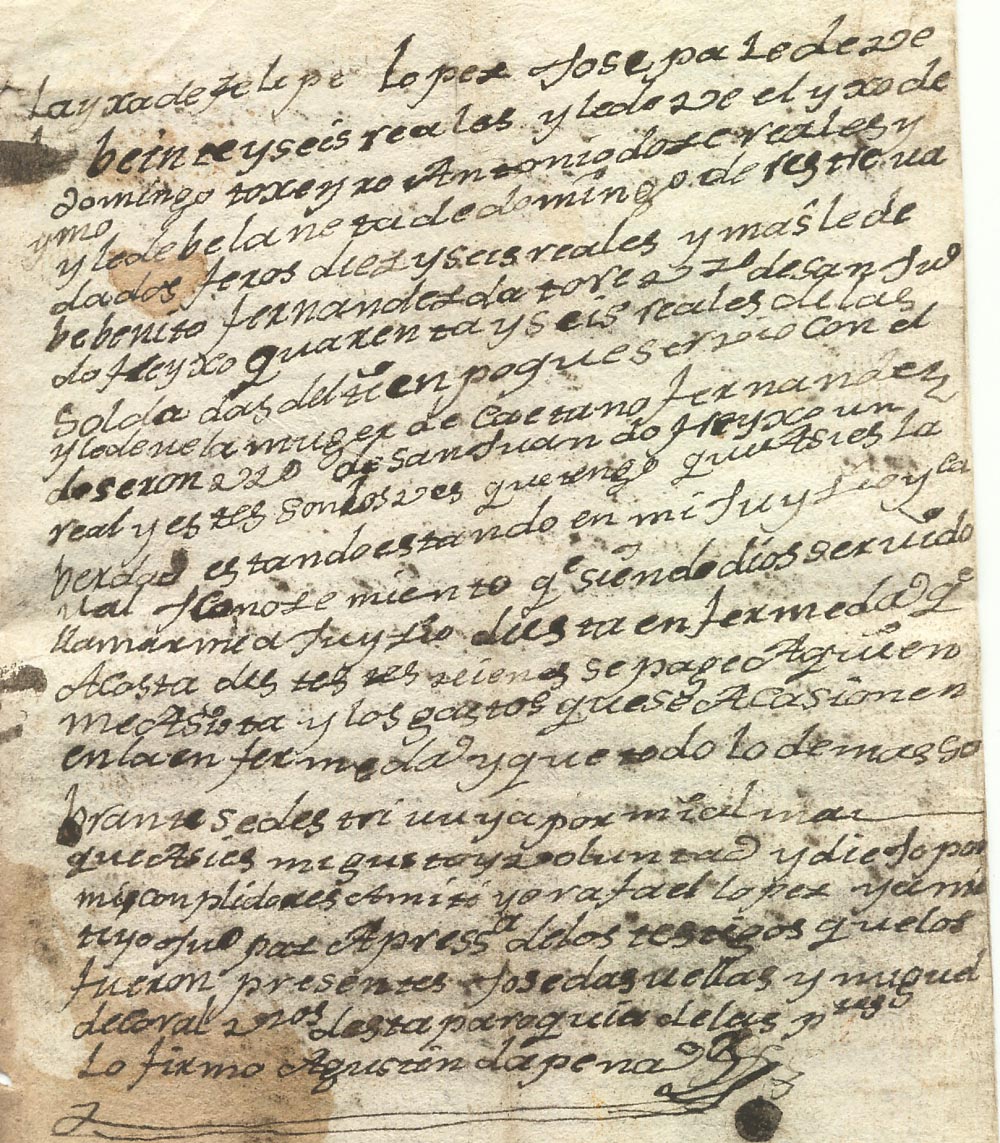 la yxa de felipe lopez Josepa le deve
beinte y seis reales y le deve el yxo de
domingo toxeyro Antonio doze reales y
ymo
y le debe la neta de domingo de restreva
da dos feros diez y seis reales y mas le de
be benito fernandez da tore vzº de san Juº
do freyxo quarenta y seis reales de las
soldadas del tienpo que servio con el
y le deve la muger de Caetano fernandez
de seron vzº de san Juan do freyxo un
real y estes son los ves que tengo que Asi es la
berdad estando estando en mi Juyzio y ca
val Conozemiento qe siendo dios servido
llamarme a Juyzio desta enfermedad qe
A costa destes bienes se page A quien
me Asista y los gastos que se Acasionen
en la enfermedad y que todo lo demas so
brante se destrivuya por mi alma
que Asi es mi gusto y voluntad y dejo por
mis conplidores A mi tiyo rafael lopez y a mi
tiyo Juº paz A pressa de los testigos que los
fueron presentes Jose das vellas y migel
de Coral vzos desta paroquia de las
lo firmo Agustin da pena